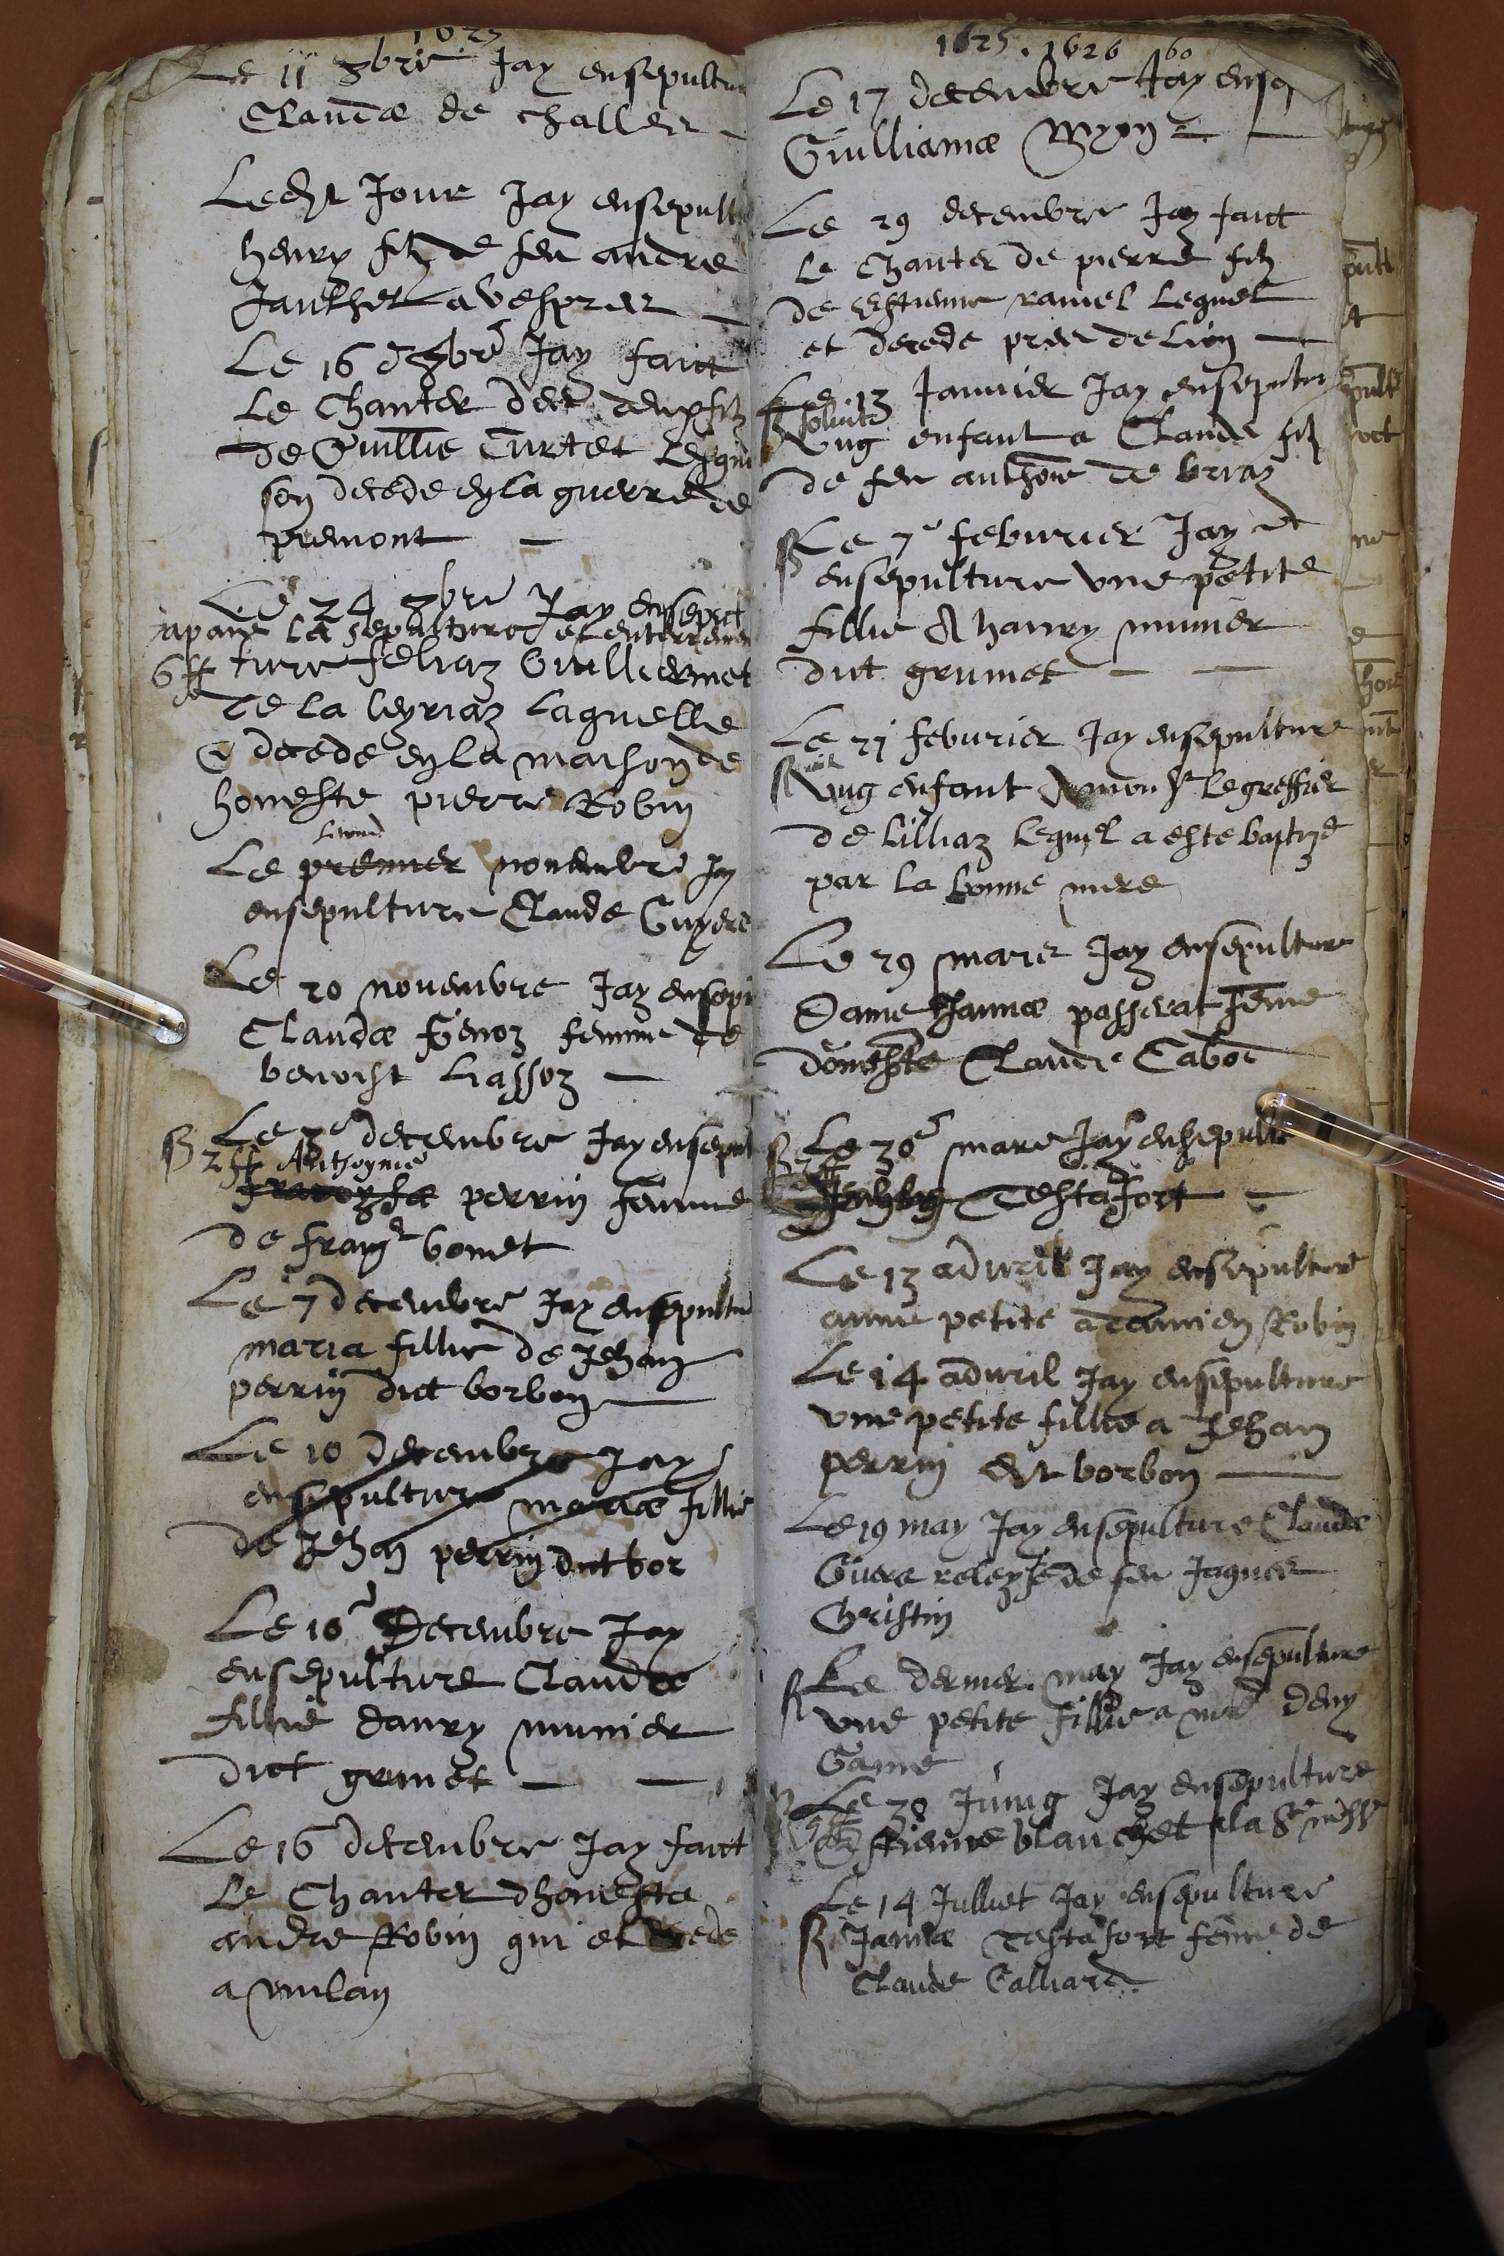 1625
Le 11 8bre Jay ensepultu
Claudæ de challes
Ledit Jour Jay ensepult
henry filz de feu andre
Janthet a vespres
Le 16 d 8bre Jay faict
Le Chanter des deux filz
de Guillie Curtet Lesqu
son decede en la guerre de
premont
Le 24 8bre Jay ensepul
apaie la sepulture et enterremen
6 ff ture feliaz Guilliermet
de la leyriaz Laquelle
decede en la maison de
honeste pierre Robin
Le premier novembre Jay
ensepulture Claude Guyere
Le 20 novembre Jay ensepu
Claudæ femme de
benoist Liassoz
Le 3e decembre Jay ensepul
2 ff Anthoyme
perrin femme
de franç bomet
Le 7 decembre Jay ensepultu
maria fillie de Jehan
perrin dict borbon
Le 10 decembre Jay
ensepulture mariæ fillie
de Jehan perrin dict bor
Le 10 Decembre Jay
ensepulture Claudæ
fillie danry munier
dict grumet
Le 16 decembre Jay faict
Le Chanter dhoneste
andre Robin qui et decede
a milan
1625. 1626 60
Le 17 decembre Jay ensep
Guilliamæ Myon
Le 29 decembre Jay faict
le Chanter de pierre filz
de Estienne ramel lequel
et decede pres de Lion
Le 13 Janvier Jay ensepultu
solvit
ung enfant a Claude filz
de feu anthoine de briaz
Le 7 feburier Jay et
ensepulture une petite
fillie A hanry munier
dict grumet
Le 21 feburier Jay ensepulture
ung enfant A mons le greffier
de Lilliaz lequel a este baptize
par la bonne mere
Le 29 mars Jay ensepulture
Dame Jannæ passerat feme
domeste Claude Cabod
Le 30 mars Jay ensepulture
Testafort
Le 13 advril Jay ensepulture
anne petite a damien Robin
Le 14 advril Jay ensepulture
une petite fillie a Jehan
perrin dit borbon
Le 19 may Jay ensepulture Claudæ
relexe de feu Jaques
Christin
Le dernier may Jay ensepulture
une petite fillie a deny
Game
Le 30 Juing Jay ensepulture
Estienne blanchet
Le 14 Julliet Jay ensepulture
Jannæ Testafort feme de
Claude Galliard